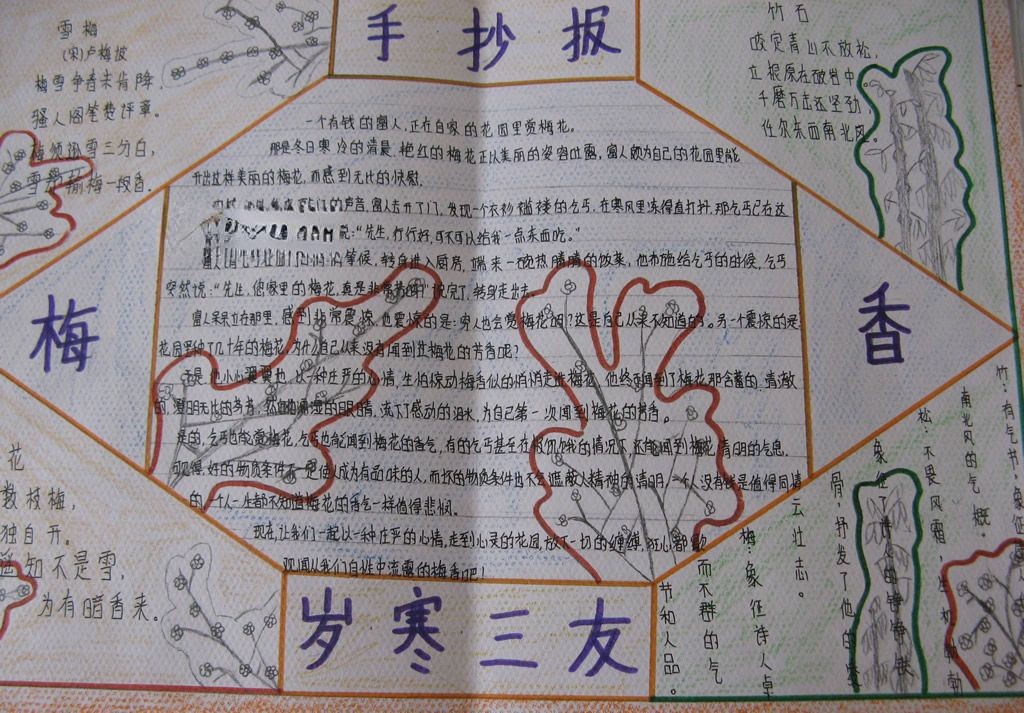 手抄报
雪梅
(宋)卢梅坡
梅雪争春未肯降,
骚人阁笔费评章。
梅须逊雪三分白,
雪却输梅一段香.
竹石
咬定青山不放松,
立根原在破岩中。
千磨万击还坚劲,
任尔东西南北风。
梅
香
一个有钱的富人,正在自家的花园里赏梅花。
那是冬日寒冷的清晨,艳红的梅花正以美丽的姿容吐露,富人颇为自己的花园里能
开出这样美丽的梅花,而感到无比的快慰.
的声音,富人去开了门,发现一个衣衫褴褛的乞丐,在寒风里冻得直打抖,那乞丐已在这
说:“先生,行行好,可不可以给我一点东西吃。”
等候,转身进入厨房,端来一碗热腾腾的饭菜,他布施给乞丐的时候,乞丐
突然说:“先生,您家里的梅花,真是非常芳香呀!”说完了,转身走出去.
富人呆呆立在那里,感到非常震惊,他震惊的是:穷人也会赏梅花吗?这是自己从来不知道的。另一个震惊的是:
花园里种了几十年的梅花,为什么自己从来没有闻到过梅花的芳香呢?
于是,他小心翼翼地,以一种庄严的心情,生怕惊动梅香似的悄悄走进梅花,他终于闻到了梅花那含蓄的、清澈
的、澄明无比的芬芳,然后他濡湿的眼睛,流下感动的泪水,为自己第一次闻到梅花的芳香。
是的,乞丐也能赏梅花,乞丐也能闻到梅花的香气,有的乞丐甚至在极饥饿的情况下,还能闻到梅花清明的气息.
可见得,好的物质条件不一定使人成为有品味的人,而坏的物质条件也不会遮蔽人精神的清明,一个人没有钱是值得同情
的,一个人一生都不知道梅花的香气一样值得悲悯。
现在,让我们一起以一种庄严的心情,走到心灵的花园,放下一切的缠缚,狂心都歇
观闻从我们自性中流露的梅香吧!
岁寒三友
花
数枝梅,
独自开。
遥知不是雪,
为有暗香来。
竹:有气节,象征
南北风的气概。
松:不畏风霜,生机勃勃
象征了诗人的铮铮铁
骨,抒发了他的
云壮志。
梅:象征诗人卓
而不群的气
节和人品。